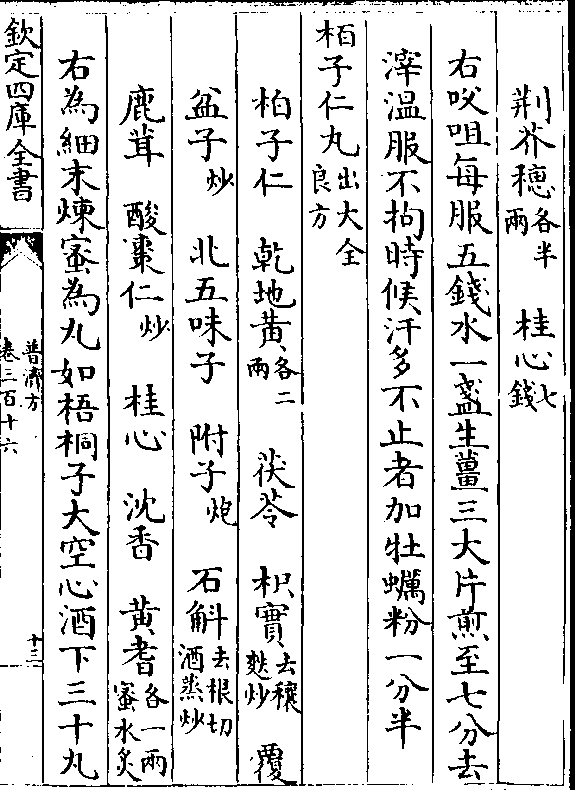 荆芥穗各半兩 桂心七錢
右㕮咀每服五錢水一盞生薑三大片煎至七分去
滓溫服不拘時候汗多不止者加牡蠣粉一分半
栢子仁丸出大全良方
柏子仁 乾地黄各二兩 茯苓 枳實去穰麩炒 覆
盆子炒 北五味子 附子炮 石斛去根切酒蒸炒
鹿茸 酸棗仁炒 桂心 沈香 黄耆各一兩蜜水炙
右為細末煉蜜為丸如梧桐子大空心酒下三十丸
欽定四庫全書
普濟方
卷三百十六
十三